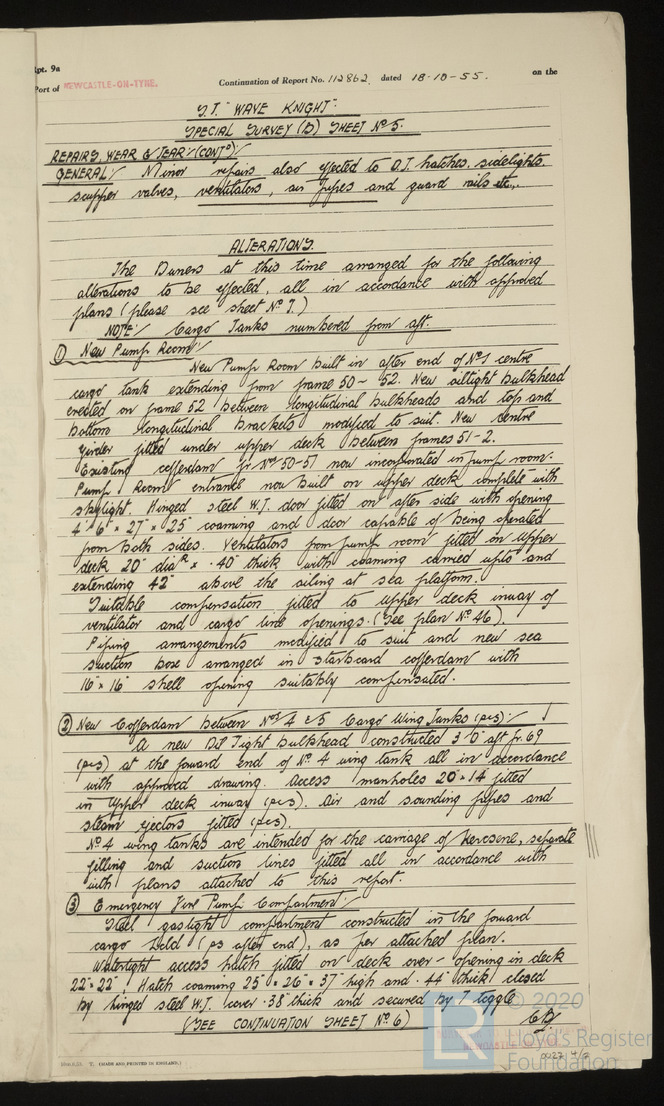 Rpt. 9a
Port of NEWCASTLE-ON-TYNE. Continuation of Report No. 112862. dated 18-10-55. on the
S.T. "WAVE KNIGHT".
SPECIAL SURVEY (D) SHEET Nº 5.
REPAIRS, WEAR & TEAR:- (CONTD)
GENERAL:- Minor repairs also effected to O.T. hatches, sidelights,
scupper valves, ventilators, air pipes and guard rails etc.
ALTERATIONS.
The Owners at this time arranged for the following
alterations to be effected, all in accordance with approved
plans (please see sheet Nº 7.)
NOTE:- Cargo Tanks numbered from aft.
① New Pump Room:-
New Pump Room built in after end of Nº1 centre
cargo tank extending from frame 50 - 52. New oiltight bulkhead
erected on frame 52 between longitudinal bulkheads and top and
bottom longitudinal brackets modified to suit. New centre
girder fitted under upper deck between frames 51-2.
Existing cofferdam fr. Nos 50-51 now incorporated in pump room.
Pump Room entrance now built on upper deck complete with
skylight. Hinged steel W.T. door fitted on after side with opening
4' 6" × 27" × 25" coaming and door capable of being operated
from both sides. Ventilators from pump room fitted on upper
deck 20" diaR × .40" thick with coaming carried upto and
extending 42" above the ailing at sea platform.
Suitable compensation fitted to upper deck inway of
ventilator and cargo line openings. (See plan Nº 46).
Piping arrangements modified to suit and new sea
suction box arranged in starboard cofferdam with
16" × 16" shell opening suitably compensated.
② New Cofferdam between Nos 4 & 5 Cargo Wing Tanks (p&s):-
A new Oil Tight bulkhead constructed 3' 0" aft fr. 69
(p&s) at the forward end of Nº 4 wing tank all in accordance
with approved drawing. Access manholes 20" × 14" fitted
in upper deck inway (p&s). Air and sounding pipes and
steam ejectors fitted (p&s).
Nº 4 wing tanks are intended for the carriage of kerosene, separate
filling and suction lines fitted all in accordance with
with plans attached to this report.
③ Emergency Fire Pump Compartment:-
Steel gastight compartment constructed in the forward
cargo hold (ps after end), as per attached plan.
Watertight access hatch fitted on deck over - opening in deck
22" × 22". Hatch coaming 25" × 26" × 37" high and .44" thick closed
by hinged steel W.T. cover .38" thick and secured by 7 toggle
(SEE CONTINUATION SHEET Nº 6)
T. (MADE AND PRINTED IN ENGLAND.)
© 2020
LR
Lloyd's Register
Foundation